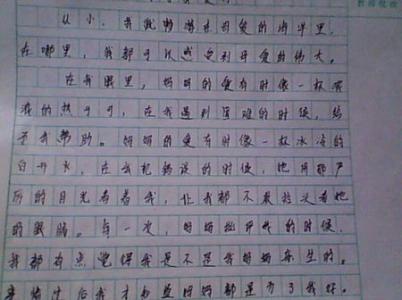 从小，我就畅游在母爱的海洋里，
在哪里，我都可以感受到母爱的伟大。
在我眼里，妈妈的爱有时像一杯浓
浓的热可可，在我遇到困难的时候，给
予我帮助。妈妈的爱有时像一杯冰凉的
白开水，在我犯错误的时候，她用那严
厉的目光看着我，让我都不敢抬头看她
的眼睛。每一次，妈妈批评我的时候，
我都有点觉得我是不是我妈妈亲生的。
事情过后我才知道妈妈都是为了我好。